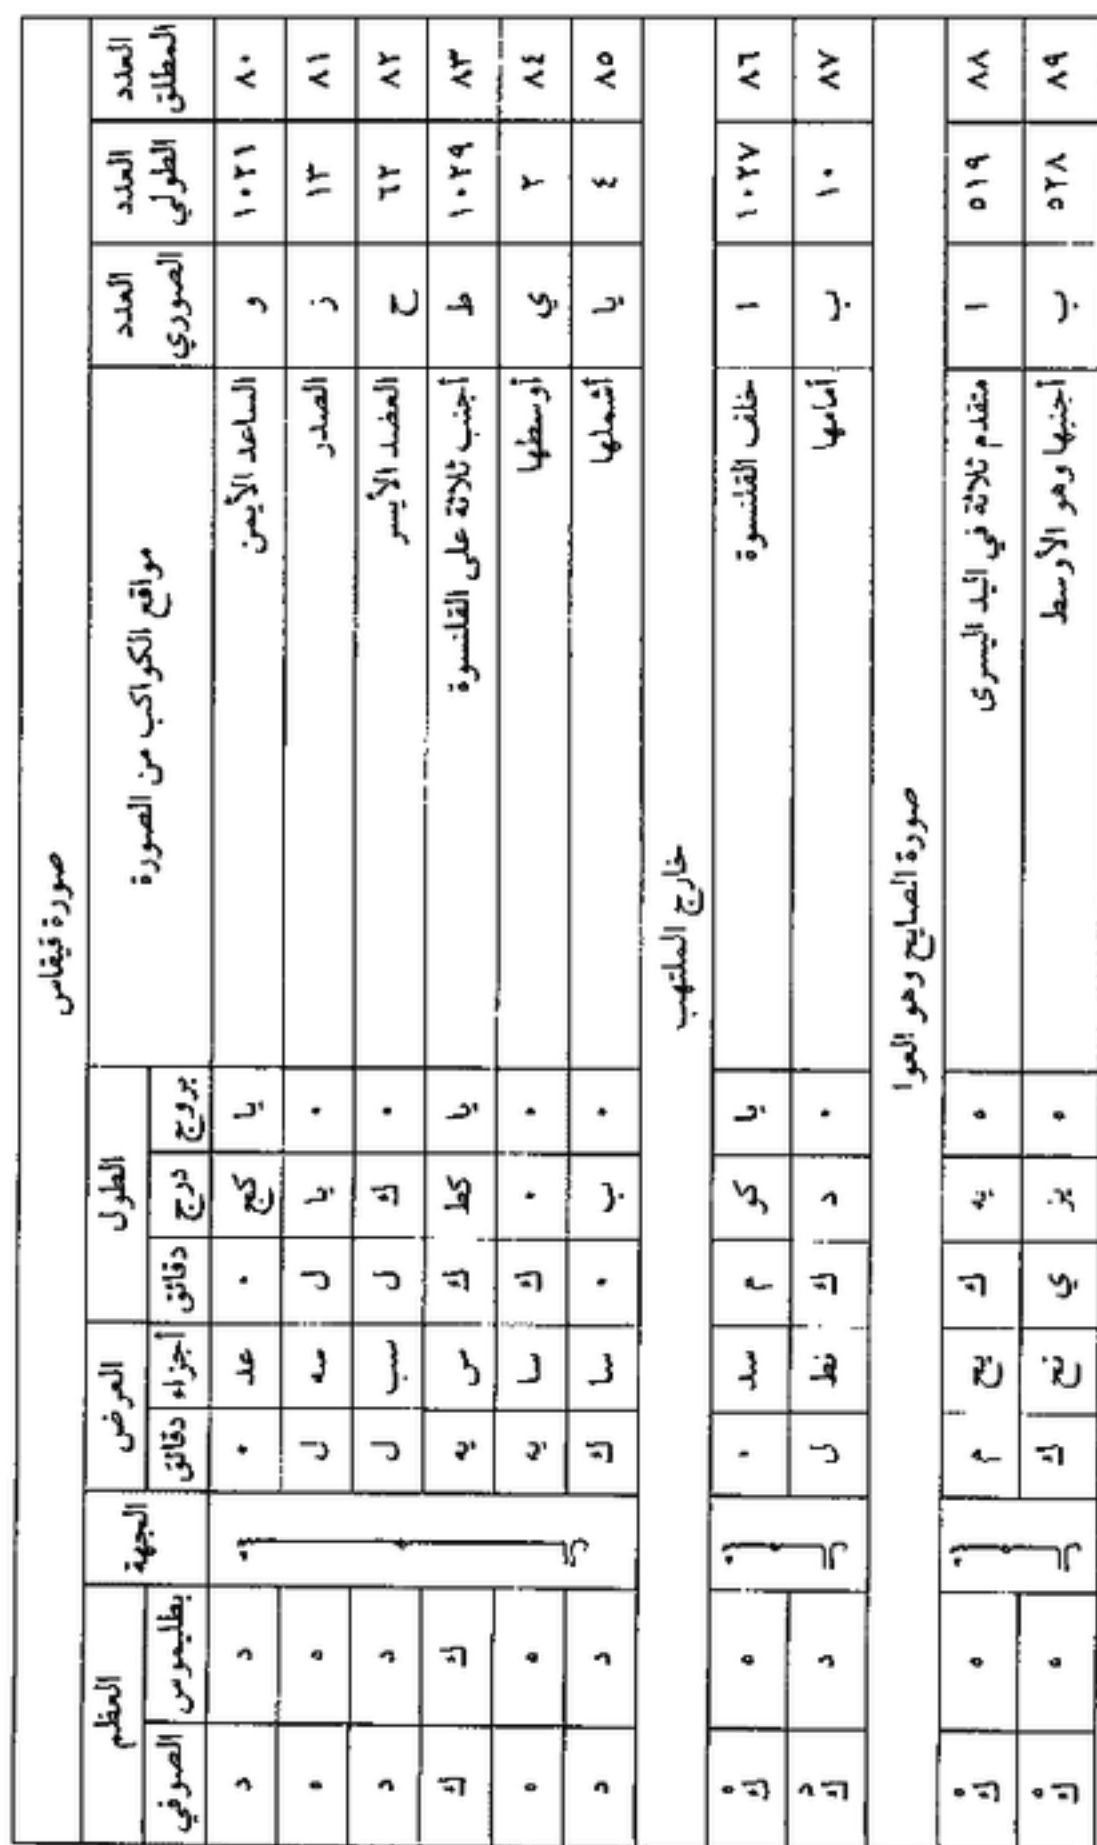 صورة قيقاس
العدد المطلق | العدد الطولي | العدد الصوري | مواقع الكواكب من الصورة | الطول | العرض | الجهة | العظم
بروج | درج | دقائق | أجزاء | دقائق | بطليموس | الصوفي
٨٠ | ١٠٢١ | و | الساعد الأيمن | يا | كح | ٠ | عد | ٠ | د | د
٨١ | ١٣ | ز | الصدر | ٠ | يا | ل | سه | ل | ه | ه
٨٢ | ٦٢ | ح | العضد الأيسر | ٠ | ك | ل | سب | ل | د | د
٨٣ | ١٠٢٩ | ط | أجنب ثلاثة على القلنسوة | يا | كط | ك | س | يه | ك | ك
٨٤ | ٢ | ي | أوسطها | ٠ | ٠ | ك | سا | يه | ه | ه
٨٥ | ٤ | يا | أشملها | ٠ | ب | ٠ | سا | ك | د | د
خارج الملتهب
٨٦ | ١٠٢٧ | ا | خلف القلنسوة | يا | كو | م | سد | ٠ | ه | ه ك
٨٧ | ١٠ | ب | أمامها | ٠ | د | ك | نط | ل | د | د ك
صورة الصايح وهو العوا
٨٨ | ٥١٩ | ا | متقدم ثلاثة في اليد اليسرى | ه | يه | ك | يح | م | ه | ه ك
٨٩ | ٥٢٨ | ب | أجنبها وهو الأوسط | ه | يز | ي | نح | ك | ه | ه ك